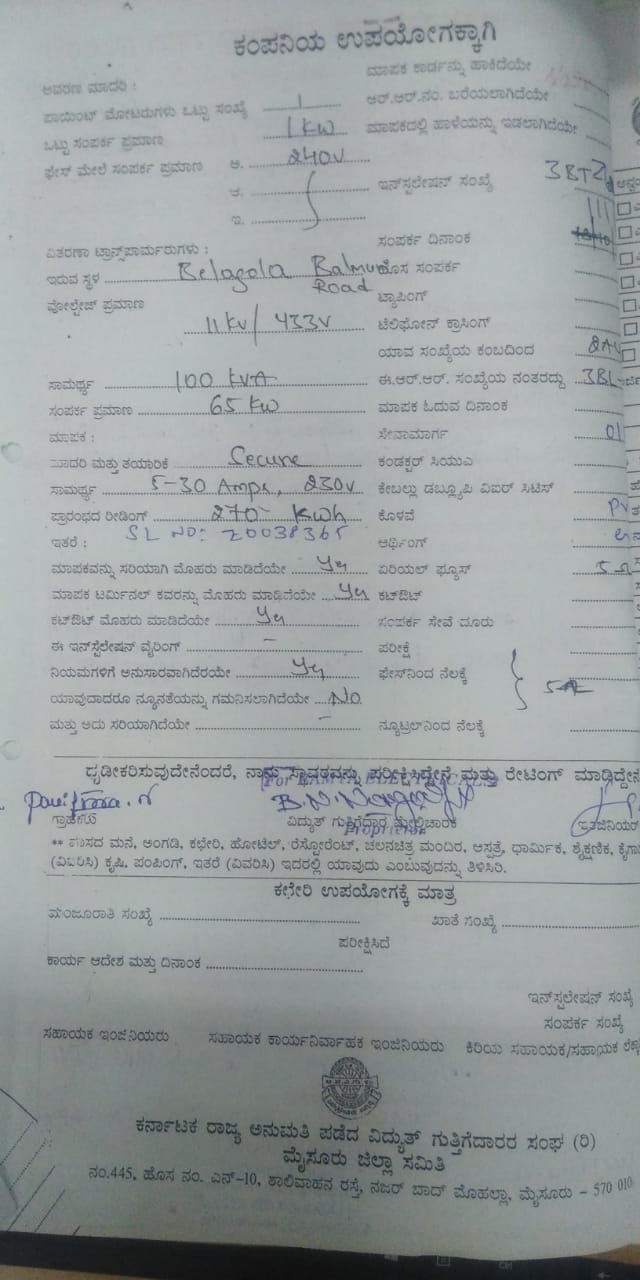 ಕಂಪನಿಯ ಉಪಯೋಗಕ್ಕಾಗಿ
ಆವರಣ ಮಾದರಿ :
ಮಾಪಕ ಕಾರ್ಡನ್ನು ಹಾಕಿದೆಯೇ
ಪಾಯಿಂಟ್ ಮೋಟರುಗಳು ಒಟ್ಟು ಸಂಖ್ಯೆ 1
ಆರ್.ಆರ್.ನಂ. ಬರೆಯಲಾಗಿದೆಯೇ
ಒಟ್ಟು ಸಂಪರ್ಕ ಪ್ರಮಾಣ 1 KW
ಮಾಪಕದಲ್ಲಿ ಹಾಳೆಯನ್ನು ಇಡಲಾಗಿದೆಯೇ
ಫೇಸ್ ಮೇಲೆ ಸಂಪರ್ಕ ಪ್ರಮಾಣ ಅ. 240V
ಆ.
ಇನ್‌ಸ್ಟಲೇಷನ್ ಸಂಖ್ಯೆ
ಇ.
ಸಂಪರ್ಕ ದಿನಾಂಕ
ವಿತರಣಾ ಟ್ರಾನ್ಸ್‌ಫಾರ್ಮರುಗಳು :
ಇರುವ ಸ್ಥಳ Belagola Road
ಹೊಸ ಸಂಪರ್ಕ
ಟ್ಯಾಪಿಂಗ್
ವೋಲ್ಟೇಜ್ ಪ್ರಮಾಣ 11 KV/ 433V
ಟೆಲಿಫೋನ್ ಕ್ರಾಸಿಂಗ್
ಯಾವ ಸಂಖ್ಯೆಯ ಕಂಬದಿಂದ
ಸಾಮರ್ಥ್ಯ 100 KVA
ಈ.ಆರ್.ಆರ್. ಸಂಖ್ಯೆಯ ನಂತರದ್ದು 3BL
ಸಂಪರ್ಕ ಪ್ರಮಾಣ 65 KW
ಮಾಪಕ ಓದುವ ದಿನಾಂಕ
ಮಾಪಕ :
ಸೇವಾಮಾರ್ಗ 01
ಮಾದರಿ ಮತ್ತು ತಯಾರಿಕೆ Secure
ಕಂಡಕ್ಟರ್ ಸಿಯುಎ
ಸಾಮರ್ಥ್ಯ 5-30 Amps, 230V
ಕೇಬಲ್ಲು ಡಬ್ಲ್ಯೂಪಿ ವಿಐರ್ ಸಿಟಿಸ್
ಪ್ರಾರಂಭದ ರೀಡಿಂಗ್ 270 KWh
ಕೊಳವೆ
SL NO: 20038365
ಇತರೆ :
ಆರ್ಥಿಂಗ್
ಮಾಪಕವನ್ನು ಸರಿಯಾಗಿ ಮೊಹರು ಮಾಡಿದೆಯೇ Yes
ಏರಿಯಲ್ ಫ್ಯೂಸ್
ಮಾಪಕ ಟರ್ಮಿನಲ್ ಕವರನ್ನು ಮೊಹರು ಮಾಡಿದೆಯೇ Yes
ಕಟ್‌ಔಟ್
ಕಟ್‌ಔಟ್ ಮೊಹರು ಮಾಡಿದೆಯೇ Yes
ಸಂಪರ್ಕ ಸೇವೆ ದೂರು
ಈ ಇನ್‌ಸ್ಟಲೇಷನ್ ವೈರಿಂಗ್ -
ಪರೀಕ್ಷೆ
ನಿಯಮಗಳಿಗೆ ಅನುಸಾರವಾಗಿದೆರಯೇ Yes
ಫೇಸ್‌ನಿಂದ ನೆಲಕ್ಕೆ
ಯಾವುದಾದರೂ ನ್ಯೂನತೆಯನ್ನು ಗಮನಿಸಲಾಗಿದೆಯೇ No
ಮತ್ತು ಅದು ಸರಿಯಾಗಿದೆಯೇ -
ನ್ಯೂಟ್ರಲ್‌ನಿಂದ ನೆಲಕ್ಕೆ
ಧೃಡೀಕರಿಸುವುದೇನೆಂದರೆ, ನಾನು ಸ್ಥಾವರವನ್ನು ಪರೀಕ್ಷಿಸಿದ್ದೇನೆ ಮತ್ತು ರೇಟಿಂಗ್ ಮಾಡಿದ್ದೇನೆ
ಗ್ರಾಹಕರು
ವಿದ್ಯುತ್ ಗುತ್ತಿಗೆದಾರ ಮೇಲ್ವಿಚಾರಕ
ಇಂಜಿನಿಯರ್
Proprietor
** ವಾಸದ ಮನೆ, ಅಂಗಡಿ, ಕಛೇರಿ, ಹೋಟೆಲ್, ರೆಸ್ಟೋರೆಂಟ್, ಚಲನಚಿತ್ರ ಮಂದಿರ, ಆಸ್ಪತ್ರೆ, ಧಾರ್ಮಿಕ, ಶೈಕ್ಷಣಿಕ,
(ವಿವರಿಸಿ) ಕೃಷಿ, ಪಂಪಿಂಗ್, ಇತರೆ (ವಿವರಿಸಿ) ಇದರಲ್ಲಿ ಯಾವುದು ಎಂಬುವುದನ್ನು ತಿಳಿಸಿರಿ.
ಕಛೇರಿ ಉಪಯೋಗಕ್ಕೆ ಮಾತ್ರ
ಮಂಜೂರಾತಿ ಸಂಖ್ಯೆ
ಖಾತೆ ಸಂಖ್ಯೆ
ಪರೀಕ್ಷಿಸಿದೆ
ಕಾರ್ಯ ಆದೇಶ ಮತ್ತು ದಿನಾಂಕ
ಇನ್‌ಸ್ಟಲೇಷನ್ ಸಂಖ್ಯೆ
ಸಂಪರ್ಕ ಸಂಖ್ಯೆ
ಸಹಾಯಕ ಇಂಜಿನಿಯರು ಸಹಾಯಕ ಕಾರ್ಯನಿರ್ವಾಹಕ ಇಂಜಿನಿಯರು ಕಿರಿಯ ಸಹಾಯಕ/ಸಹಾಯಕ
ಕರ್ನಾಟಕ ರಾಜ್ಯ ಅನುಮತಿ ಪಡೆದ ವಿದ್ಯುತ್ ಗುತ್ತಿಗೆದಾರರ ಸಂಘ (ರಿ)
ಮೈಸೂರು ಜಿಲ್ಲಾ ಸಮಿತಿ
ನಂ.445, ಹೊಸ ನಂ. ಎನ್-10, ಶಾಲಿವಾಹನ ರಸ್ತೆ, ನಜರ್ ಬಾದ್ ಮೊಹಲ್ಲಾ, ಮೈಸೂರು - 570 010